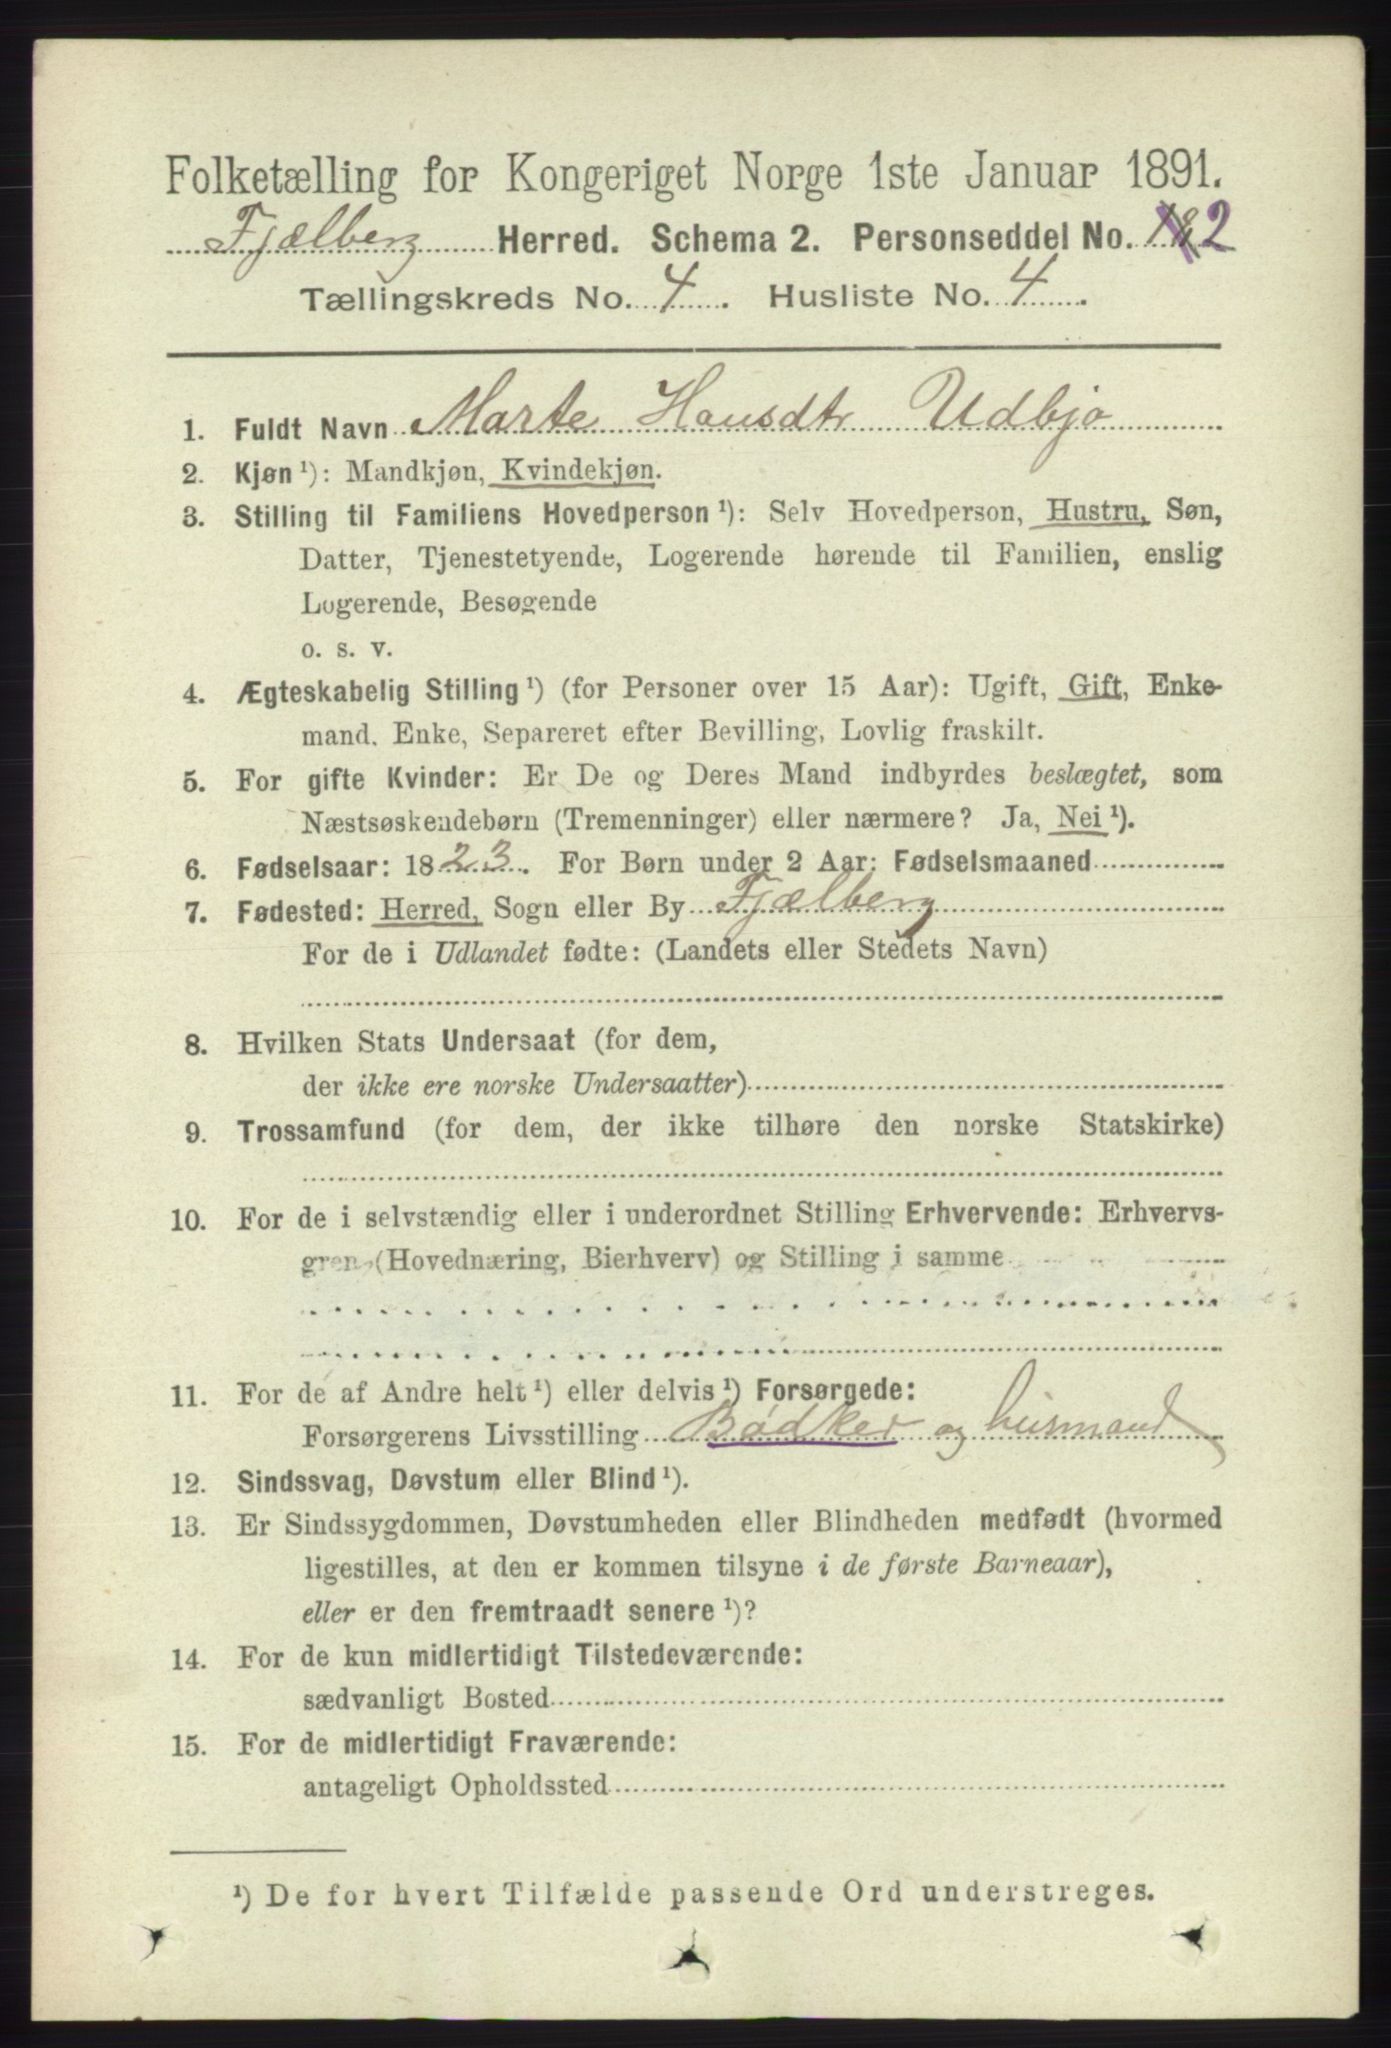 Folketælling for Kongeriget Norge 1ste Januar 1891.
Fjælberg Herred. Schema 2. Personseddel No. 2
Tællingskreds No. 4. Husliste No. 4.
1. Fuldt Navn Marte Hansdtr Udbjo
2. Kjøn ¹): Mandkjøn, Kvindekjøn.
3. Stilling til Familiens Hovedperson ¹): Selv Hovedperson, Hustru, Søn,
Datter, Tjenestetyende, Logerende hørende til Familien, enslig
Logerende, Besøgende
o. s. v.
4. Ægteskabelig Stilling ¹) (for Personer over 15 Aar): Ugift, Gift, Enke-
mand. Enke, Separeret efter Bevilling, Lovlig fraskilt.
5. For gifte Kvinder: Er De og Deres Mand indbyrdes beslægtet, som
Næstsøskendebørn (Tremenninger) eller nærmere? Ja, Nei ¹).
6. Fødselsaar: 1823. For Børn under 2 Aar: Fødselsmaaned
7. Fødested: Herred, Sogn eller By Fjælberg
For de i Udlandet fødte: (Landets eller Stedets Navn)
8. Hvilken Stats Undersaat (for dem,
der ikke ere norske Undersaatter)
9. Trossamfund (for dem, der ikke tilhøre den norske Statskirke)
10. For de i selvstændig eller i underordnet Stilling Erhvervende: Erhvervs-
gren (Hovednæring, Bierhverv) og Stilling i samme
11. For de af Andre helt ¹) eller delvis ¹) Forsørgede:
Forsørgerens Livsstilling Bødker og husmand
12. Sindssvag, Døvstum eller Blind ¹).
13. Er Sindssygdommen, Døvstumheden eller Blindheden medfødt (hvormed
ligestilles, at den er kommen tilsyne i de første Barneaar),
eller er den fremtraadt senere ¹)?
14. For de kun midlertidigt Tilstedeværende:
sædvanligt Bosted
15. For de midlertidigt Fraværende:
antageligt Opholdssted
¹) De for hvert Tilfælde passende Ord understreges.